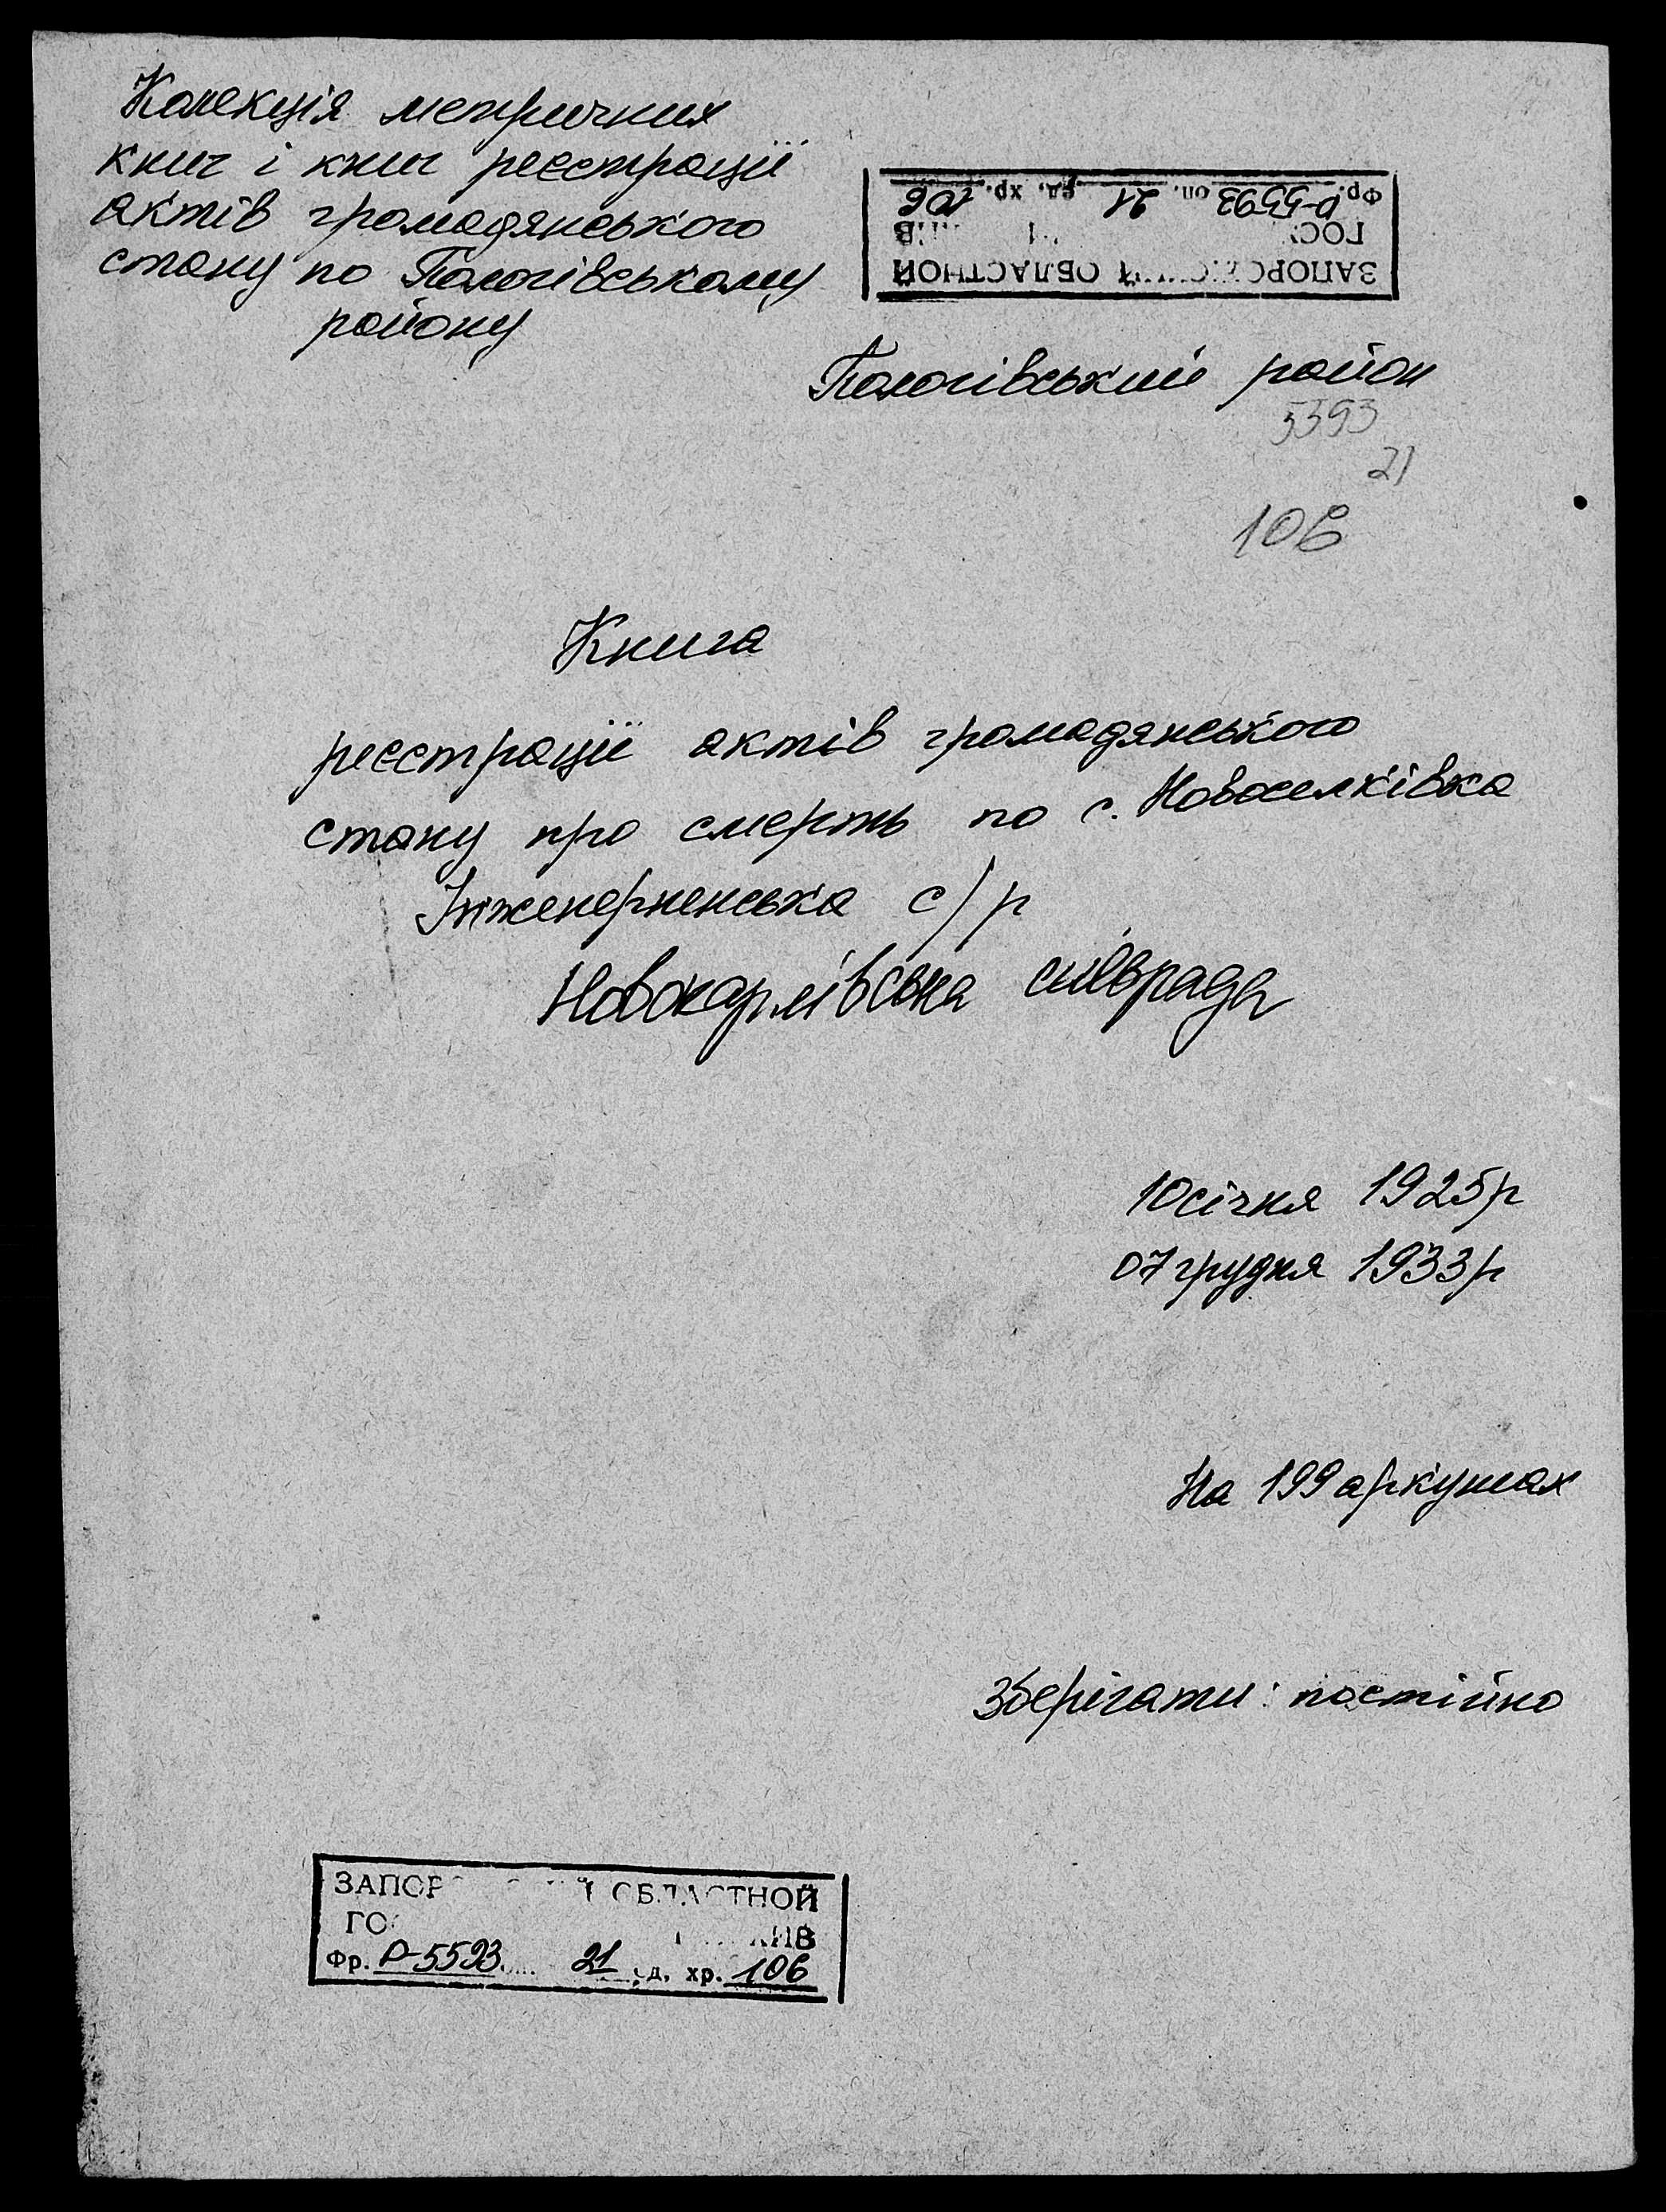 Колекція метричних
книг і книг реєстрації
актів громадянського
стану по Пологівському
району
Фр. Р-5593 оп. 21 ед. хр. 106
ОБЛАСТНОЙ
Пологівський район
5593
21
106
Книга
реєстрації актів громадянського
стану про смерть по с. Новоселківка
Інженерненська с/р
Новокарлівська сільрада
10 січня 1925р
07 грудня 1933р
На 199 аркушах
Зберігати: постійно
ОБЛАСТНОЙ
Фр. Р-5593 21 ед. хр. 106